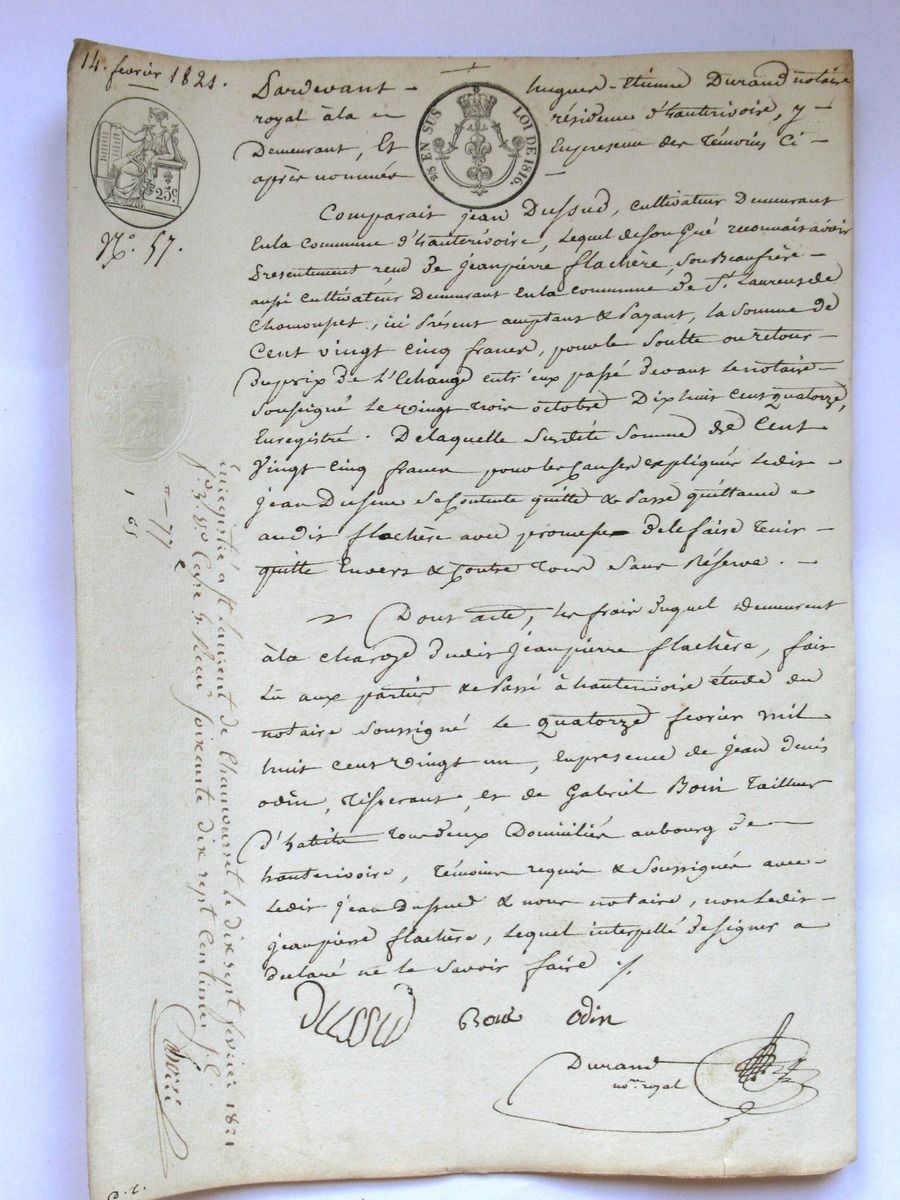 14. fevrier 1821.
Pardevant — hugues-Etienne Durand notaire
royal àla — résidence d'hauterivoire, y —
Demeurant, Et Enpresence des Témoins Ci —
après nommés —
25 EN SUS LOI DE 1816.
25.c
N.o 57.
Comparait jean Dussud, cultivateur Demeurant
Enla commune d'hauterivoire, Lequel deson Gré reconnait avoir
Présentement reçu de jeanpierre flachère, sonBeaufrère —
aussi cultivateur Demeurant Enla commune de St. Laurent de
Chamousset, ici Présent acceptant & Payant, la Somme de
Cent vingt cinq francs, pour le Soulte ou retour —
duprix de L'Echange entr'eux passé devant le notaire —
Soussigné Le vingt trois octobre Dix huit Cent Quatorze,
Enregistré. Delaquelle Susdite Somme de Cent
Vingt Cinq francs pour les Causes expliquées Ledit —
jean Dussud se Contente quitte & Passe quittance a
audit flachère avec promesse de le faire Tenir —
quitte Envers & Contre Tous Sans Réserve. —
Dont acte, les frais duquel demeurent
àla charge dudit jeanpierre flachère, fait
Lu aux parties & Passé à hauterivoire étude du
notaire Soussigné Le Quatorze fevrier mil
huit cent vingt un, Enpresence de jean denis
odin, Tisserant, et de Gabriel Boin Tailleur
d'habits Tous deux Domiciliés aubourg de —
hauterivoire, Témoins requis & Soussignés avec —
Ledit jean Dussud & nous notaire, non Ledit —
jeanpierre flachère, Lequel interpellé de signer a
declaré ne le Savoir faire
Dussud Boin Odin
Durand
no.re royal
Enregistré a St laurent de Chamousset le dix sept février 1821
Reçu soixante dix sept Centimes
77
1 65